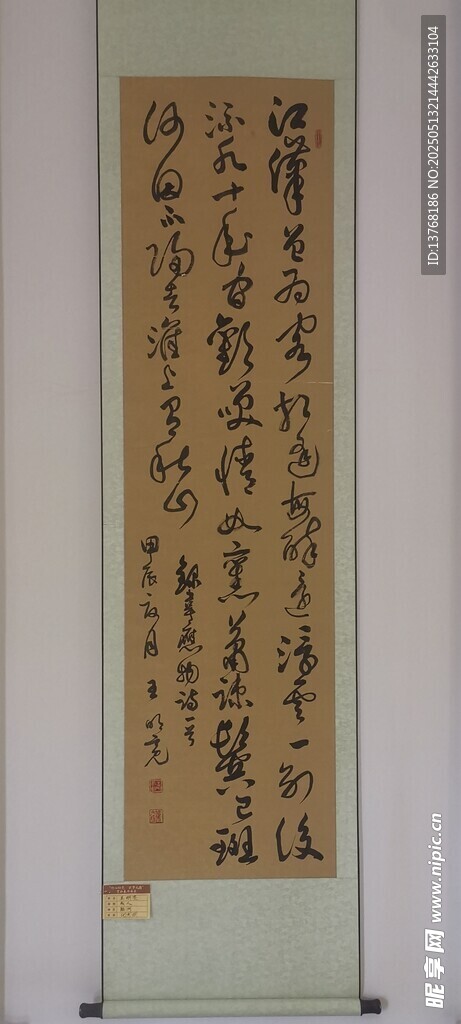 江漢曾為客相逢每醉還浮雲一別後
流水十年間歡笑情如舊蕭疏鬢已斑
何因不歸去淮上有秋山
錄韋應物詩一首
甲辰夏月 王明亮
ID:13768186 NO:20250513214442633104
昵享网 www.nipic.cn